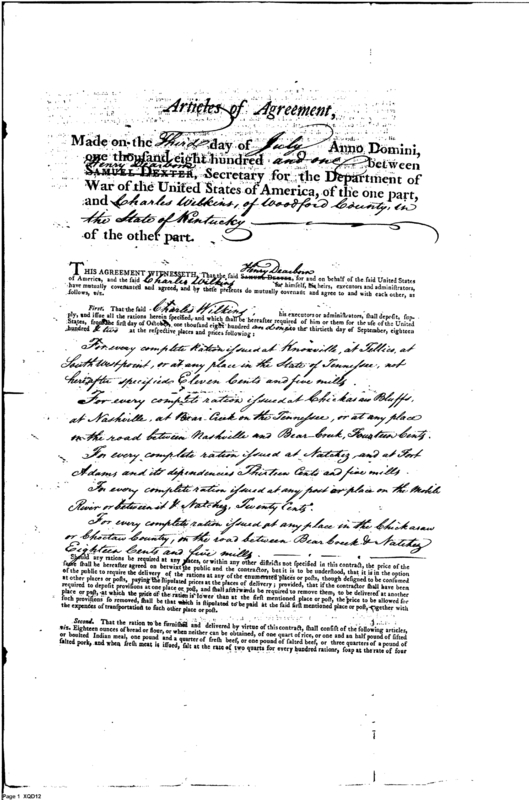 Articles of Agreement,
Made on the Third day of July Anno Domini,
one thousand eight hundred and one between
Henry Dearborn
SAMUEL DEXTER, Secretary for the Department of
War of the United States of America, of the one part,
and Charles Wilkins, of Woodford County, in
the State of Kentucky
of the other part.
Henry Dearborn
THIS AGREEMENT WITNESSETH, That the said SAMUEL DEXTER, for and on behalf of the said United States
of America, and the said Charles Wilkins for himself, his heirs, executors and administrators,
have mutually covenanted and agreed, and by these presents do mutually covenant and agree to and with each other, as
follows, viz.
First. That the said Charles Wilkins his executors or administrators, shall deposit, sup-
ply, and issue all the rations herein specified, and which shall be hereafter required of him or them for the use of the United
States, from the first day of October, one thousand eight hundred and one to the thirtieth day of September, eighteen
hundred & two at the respective places and prices following:
For every complete Ration issued at Knoxville, at Tellico, at
South West point, or at any place in the State of Tennessee, not
hereafter specified Eleven Cents and five mills.
For every complete ration issued at Chickasaw Bluffs,
at Nashville, at Bear-Creek on the Tennessee, or at any place
on the road between Nashville and Bear-Creek, Fourteen Cents.
For every complete ration issued at Natchez, and at Fort
Adams and its dependencies Thirteen Cents and five mills.
For every complete ration issued at any post or place on the Mobile
River or between it & Natchez, Twenty Cents.
For every complete ration issued at any place in the Chickasaw
or Choctaw County, on the road between Bear Creek & Natchez
Eighteen Cents and five mills.
Should any rations be required at any places, or within any other districts not specified in this contract, the price of the
same shall be hereafter agreed on betwixt the public and the contractor, but it is to be understood, that it is in the option
of the public to require the delivery of the rations at any of the enumerated places or posts, though designed to be consumed
at other places or posts, paying the stipulated prices at the places of delivery; provided, that if the contractor shall have been
required to deposit provisions at one place or post, and shall afterwards be required to remove them, to be delivered at another
place or post, at which the price of the ration is lower than at the first mentioned place or post, the price to be allowed for
such provisions so removed, shall be that which is stipulated to be paid at the said first mentioned place or post, together with
the expences of transportation to such other place or post.
Second. That the ration to be furnished and delivered by virtue of this contract, shall consist of the following articles,
viz. Eighteen ounces of bread or flour, or when neither can be obtained, of one quart of rice, or one and an half pound of sifted
or bolted Indian meal, one pound and a quarter of fresh beef, or one pound of salted beef, or three quarters of a pound of
salted pork, and when fresh meat is issued, salt at the rate of two quarts for every hundred rations, soap at the rate of four
Page 1 XQD12